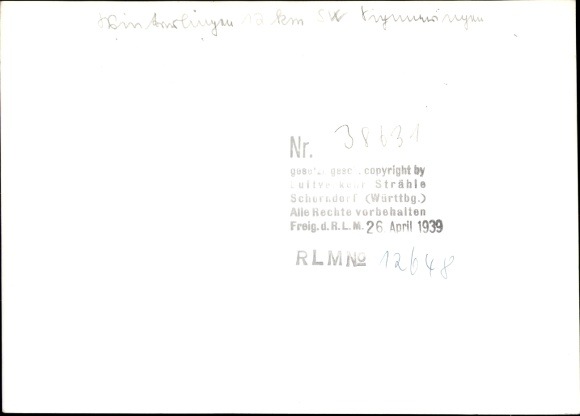 Winterlingen 12 km SW Sigmaringen
Nr. 38631
gesetzl. gesch. copyright by
Luftverkehr Strähle
Schorndorf (Württbg.)
Alle Rechte vorbehalten
Freig. d. R. L. M. 26 April 1939
RLM No 12648